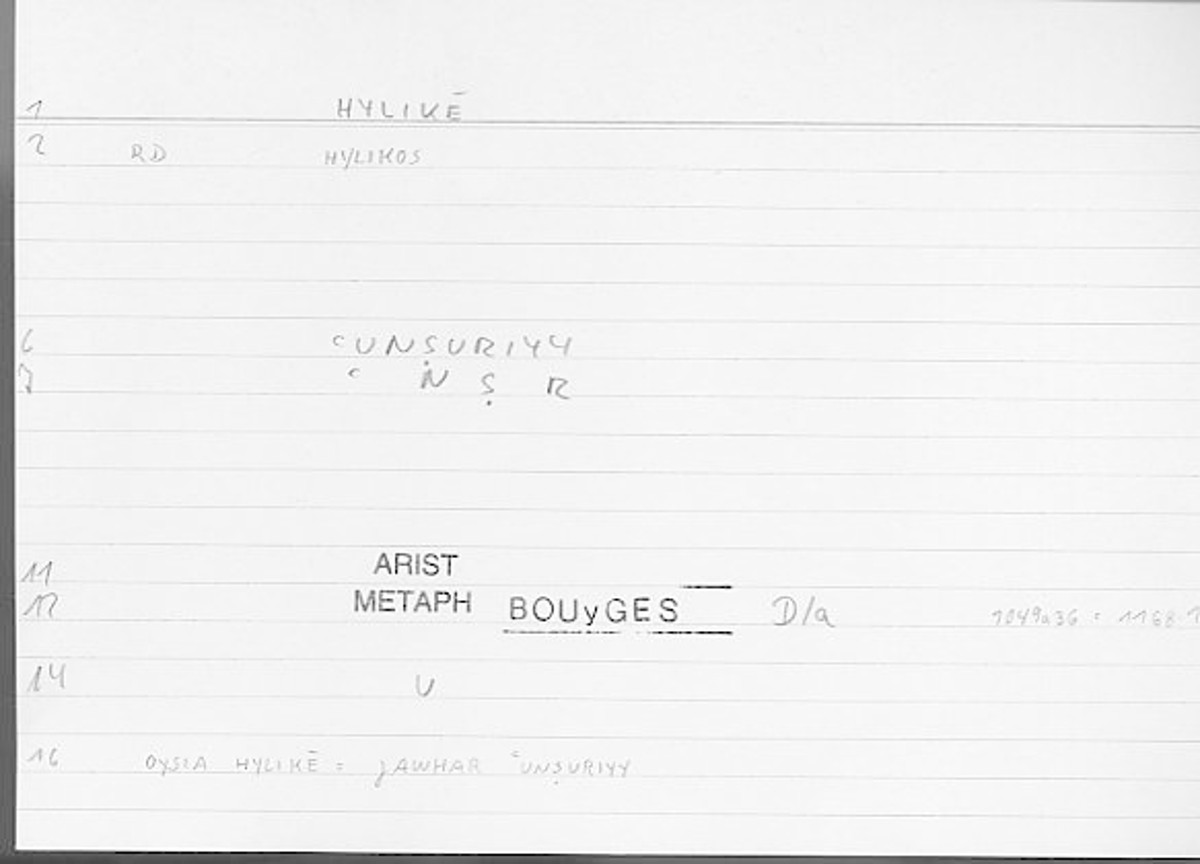 1 HYLIKĒ
2 RD HYLIKOS
6 ʿUNṢURIYY
7 ʿ N Ṣ R
11 ARIST
12 METAPH BOUyGES D/a 1049a36 = 1168.1
14 U
16 OYSIA HYLIKĒ = JAWHAR ʿUNṢURIYY